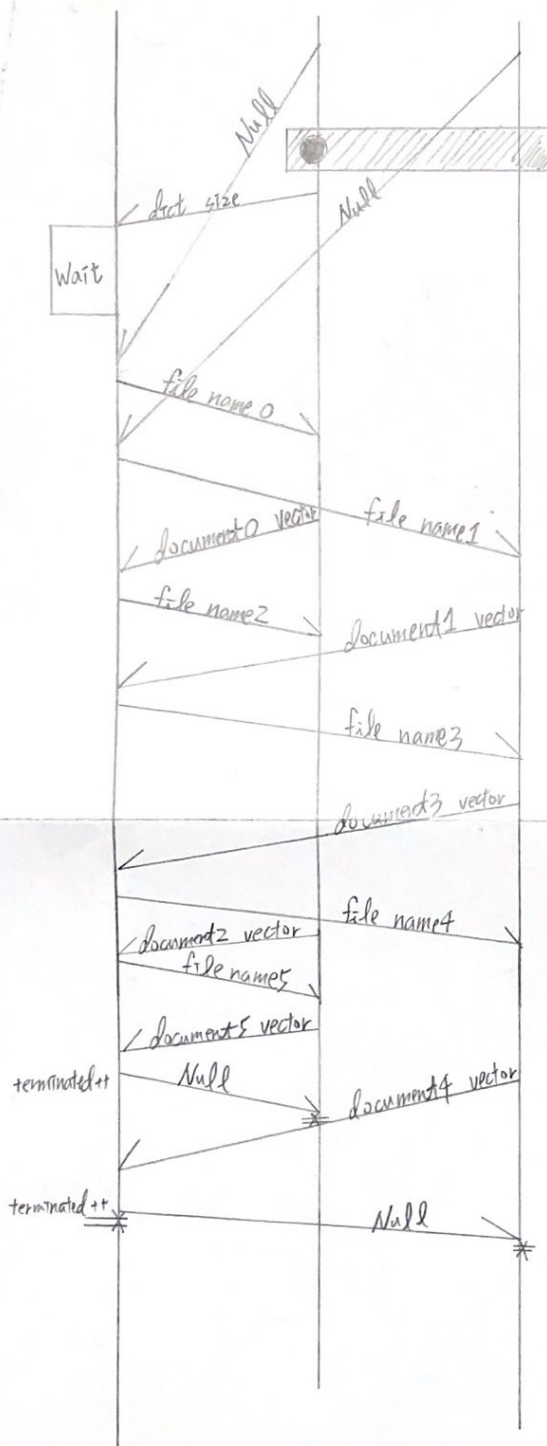 Null
dict size
Null
Wait
file name0
file name1
document0 vector
file name2
document1 vector
file name3
document3 vector
file name4
document2 vector
file name5
document5 vector
terminated++
Null
document4 vector
terminated++
Null